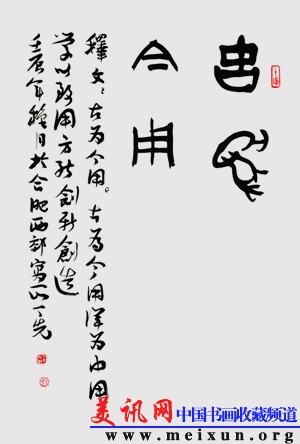 古為
今用
釋文：古为今用。古为今用洋为中用
学以致用方能创新創造
壬辰年 月於合肥西部寫 一先
美讯网 中国书画收藏频道
www.meixun.org